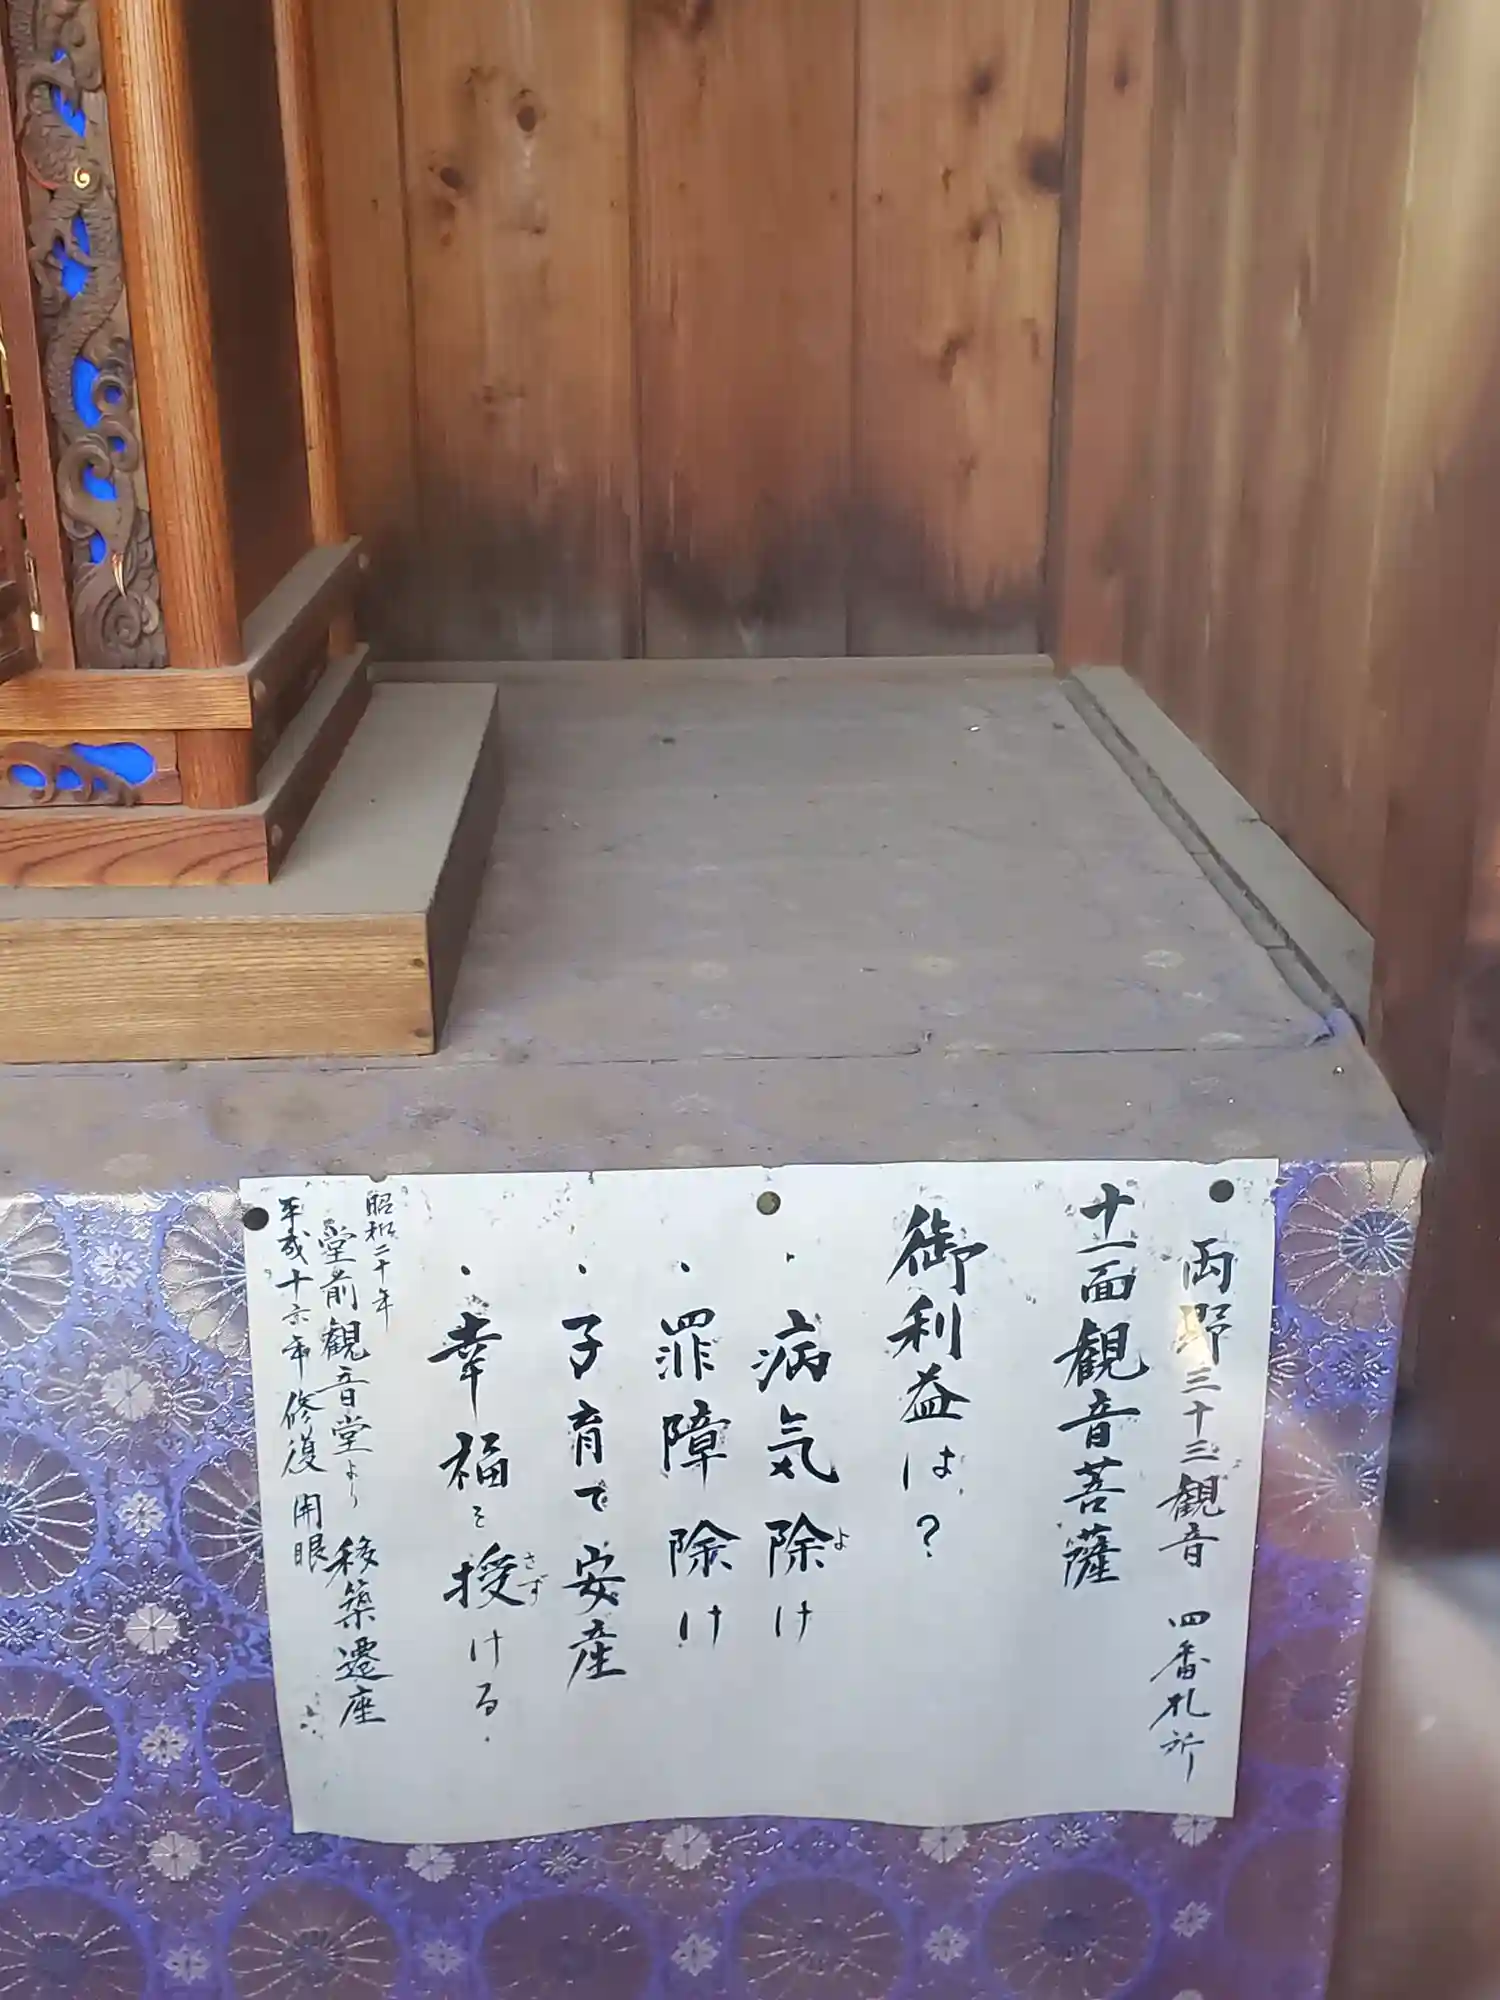 両野三十三観音 四番札所
十一面観音菩薩
御利益は?
・病気除け
よ
・罪障除け
・子育て安産
・幸福を授ける.
さず
昭和二十年
堂前観音堂より 移築遷座
平成十六年修復 開眼